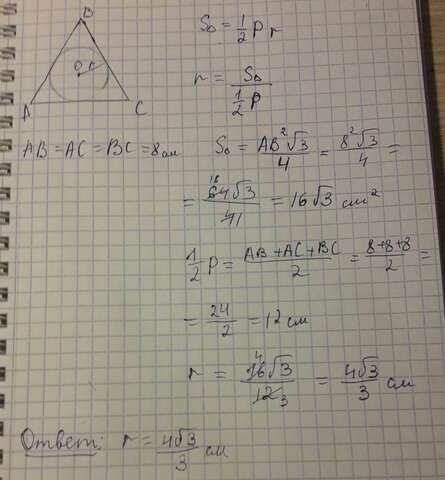 B
O r
A
C
S△ = 1/2 P r
r = S△ / (1/2 P)
AB = AC = BC = 8 см
S△ = AB²√3/4 = 8²√3/4 =
= 64√3/4 16 1 = 16√3 см²
1/2 P = (AB + AC + BC)/2 = (8+8+8)/2 =
= 24/2 = 12 см
r = 16√3/12 4 3 = 4√3/3 см
Ответ: r = 4√3/3 см